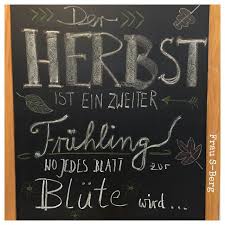 Der
HERBST
IST EIN ZWEITER
Frühling
WO JEDES BLATT zur
Blüte wird...
Frau S-Berg